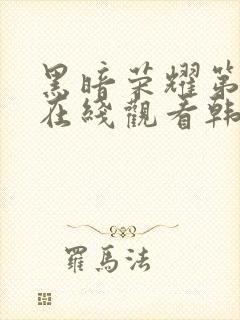 黑暗荣耀第
在綫觀看韩
羅馬法